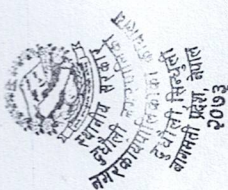 स्थानीय सरकार
दुधौली नगरपालिका
नगरकार्यपालिकाको कार्यालय
दुधौली सिन्धुली
बागमती प्रदेश, नेपाल
२०७३